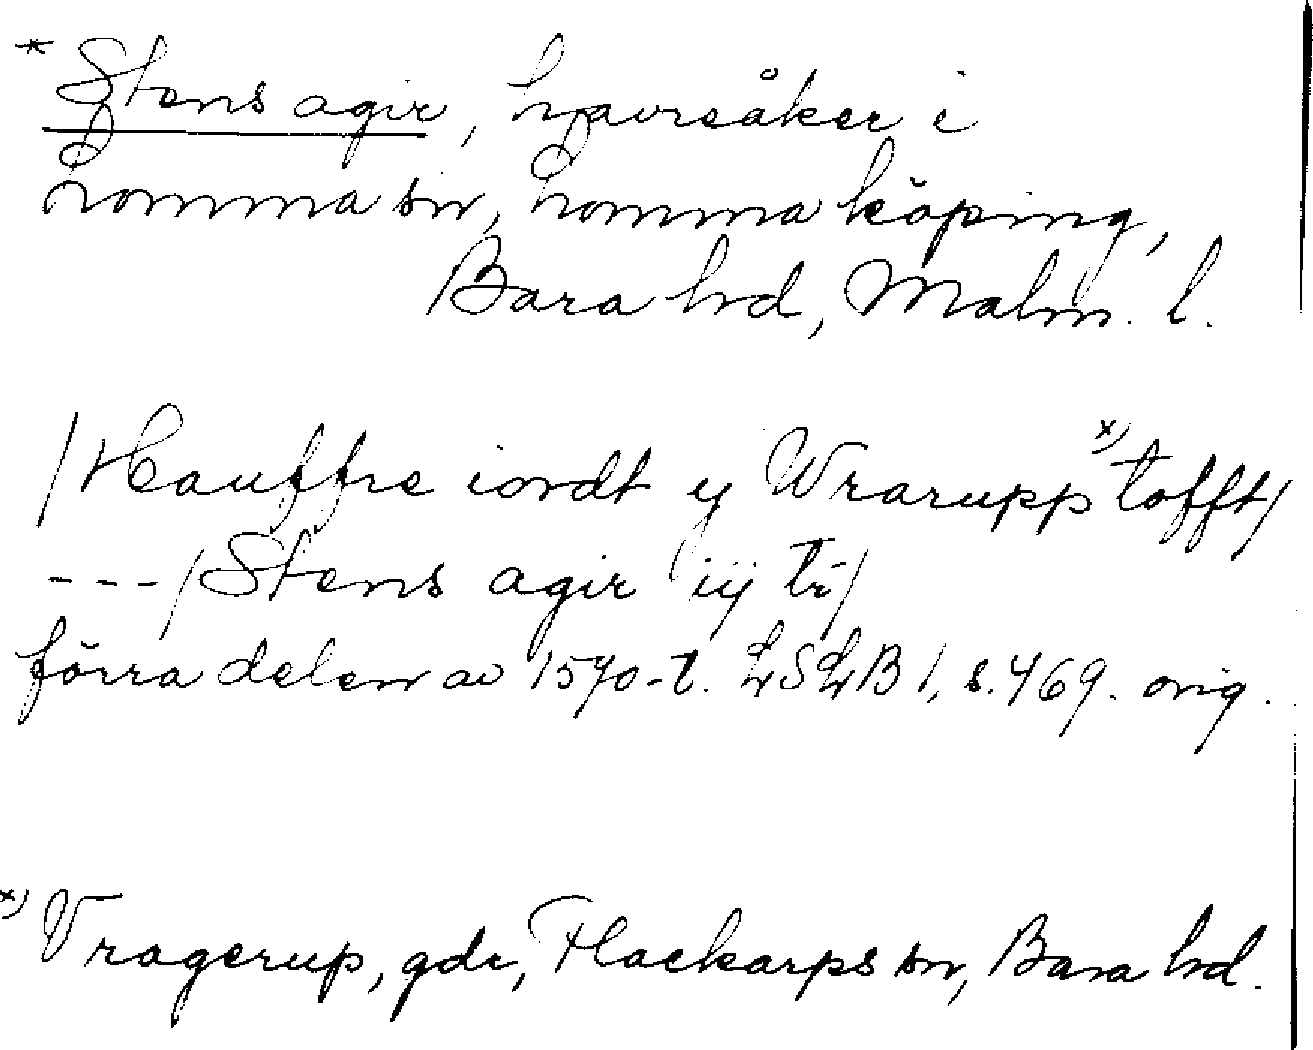 * Stens agir, havreåker i
Lomma sn, Lomma köping,
Bara hd, Malm. l.
/Hauffre iordt y Wrarupp x) tofft/
---/Stens agir iij tr/
förra delen av 1570-t. LSLB 1, s. 469. orig.
x) Vragerup, gdr, Flackarps sn, Bara hd.